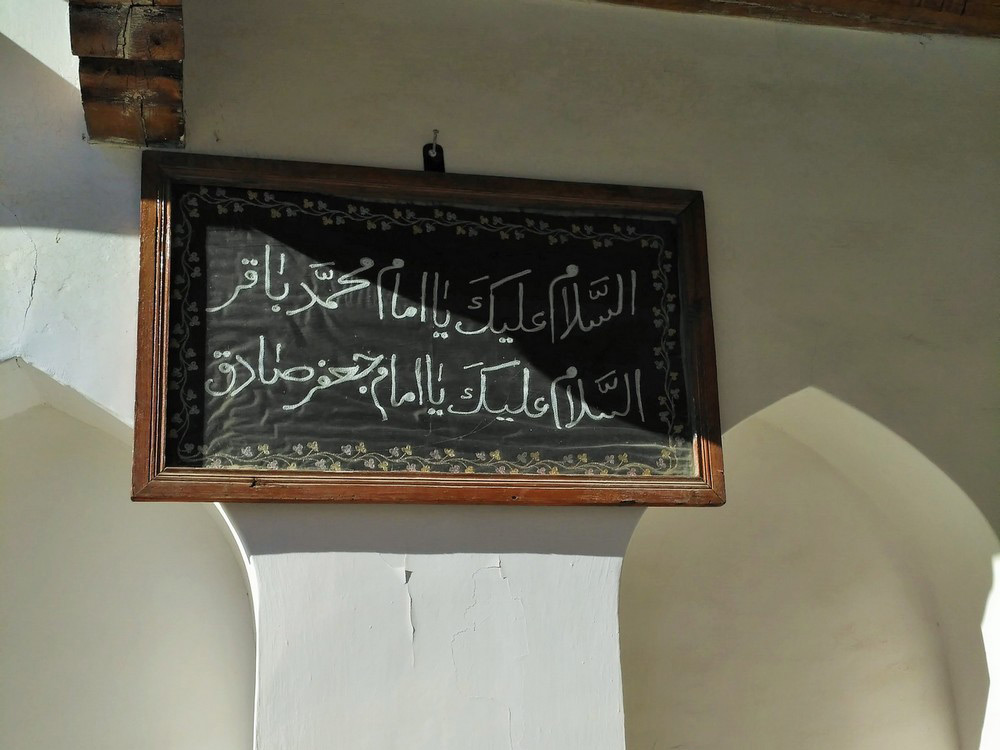 السَّلام عليكَ يا امام محمَّد باقر
السَّلام عليكَ يا امام جعفر صادق